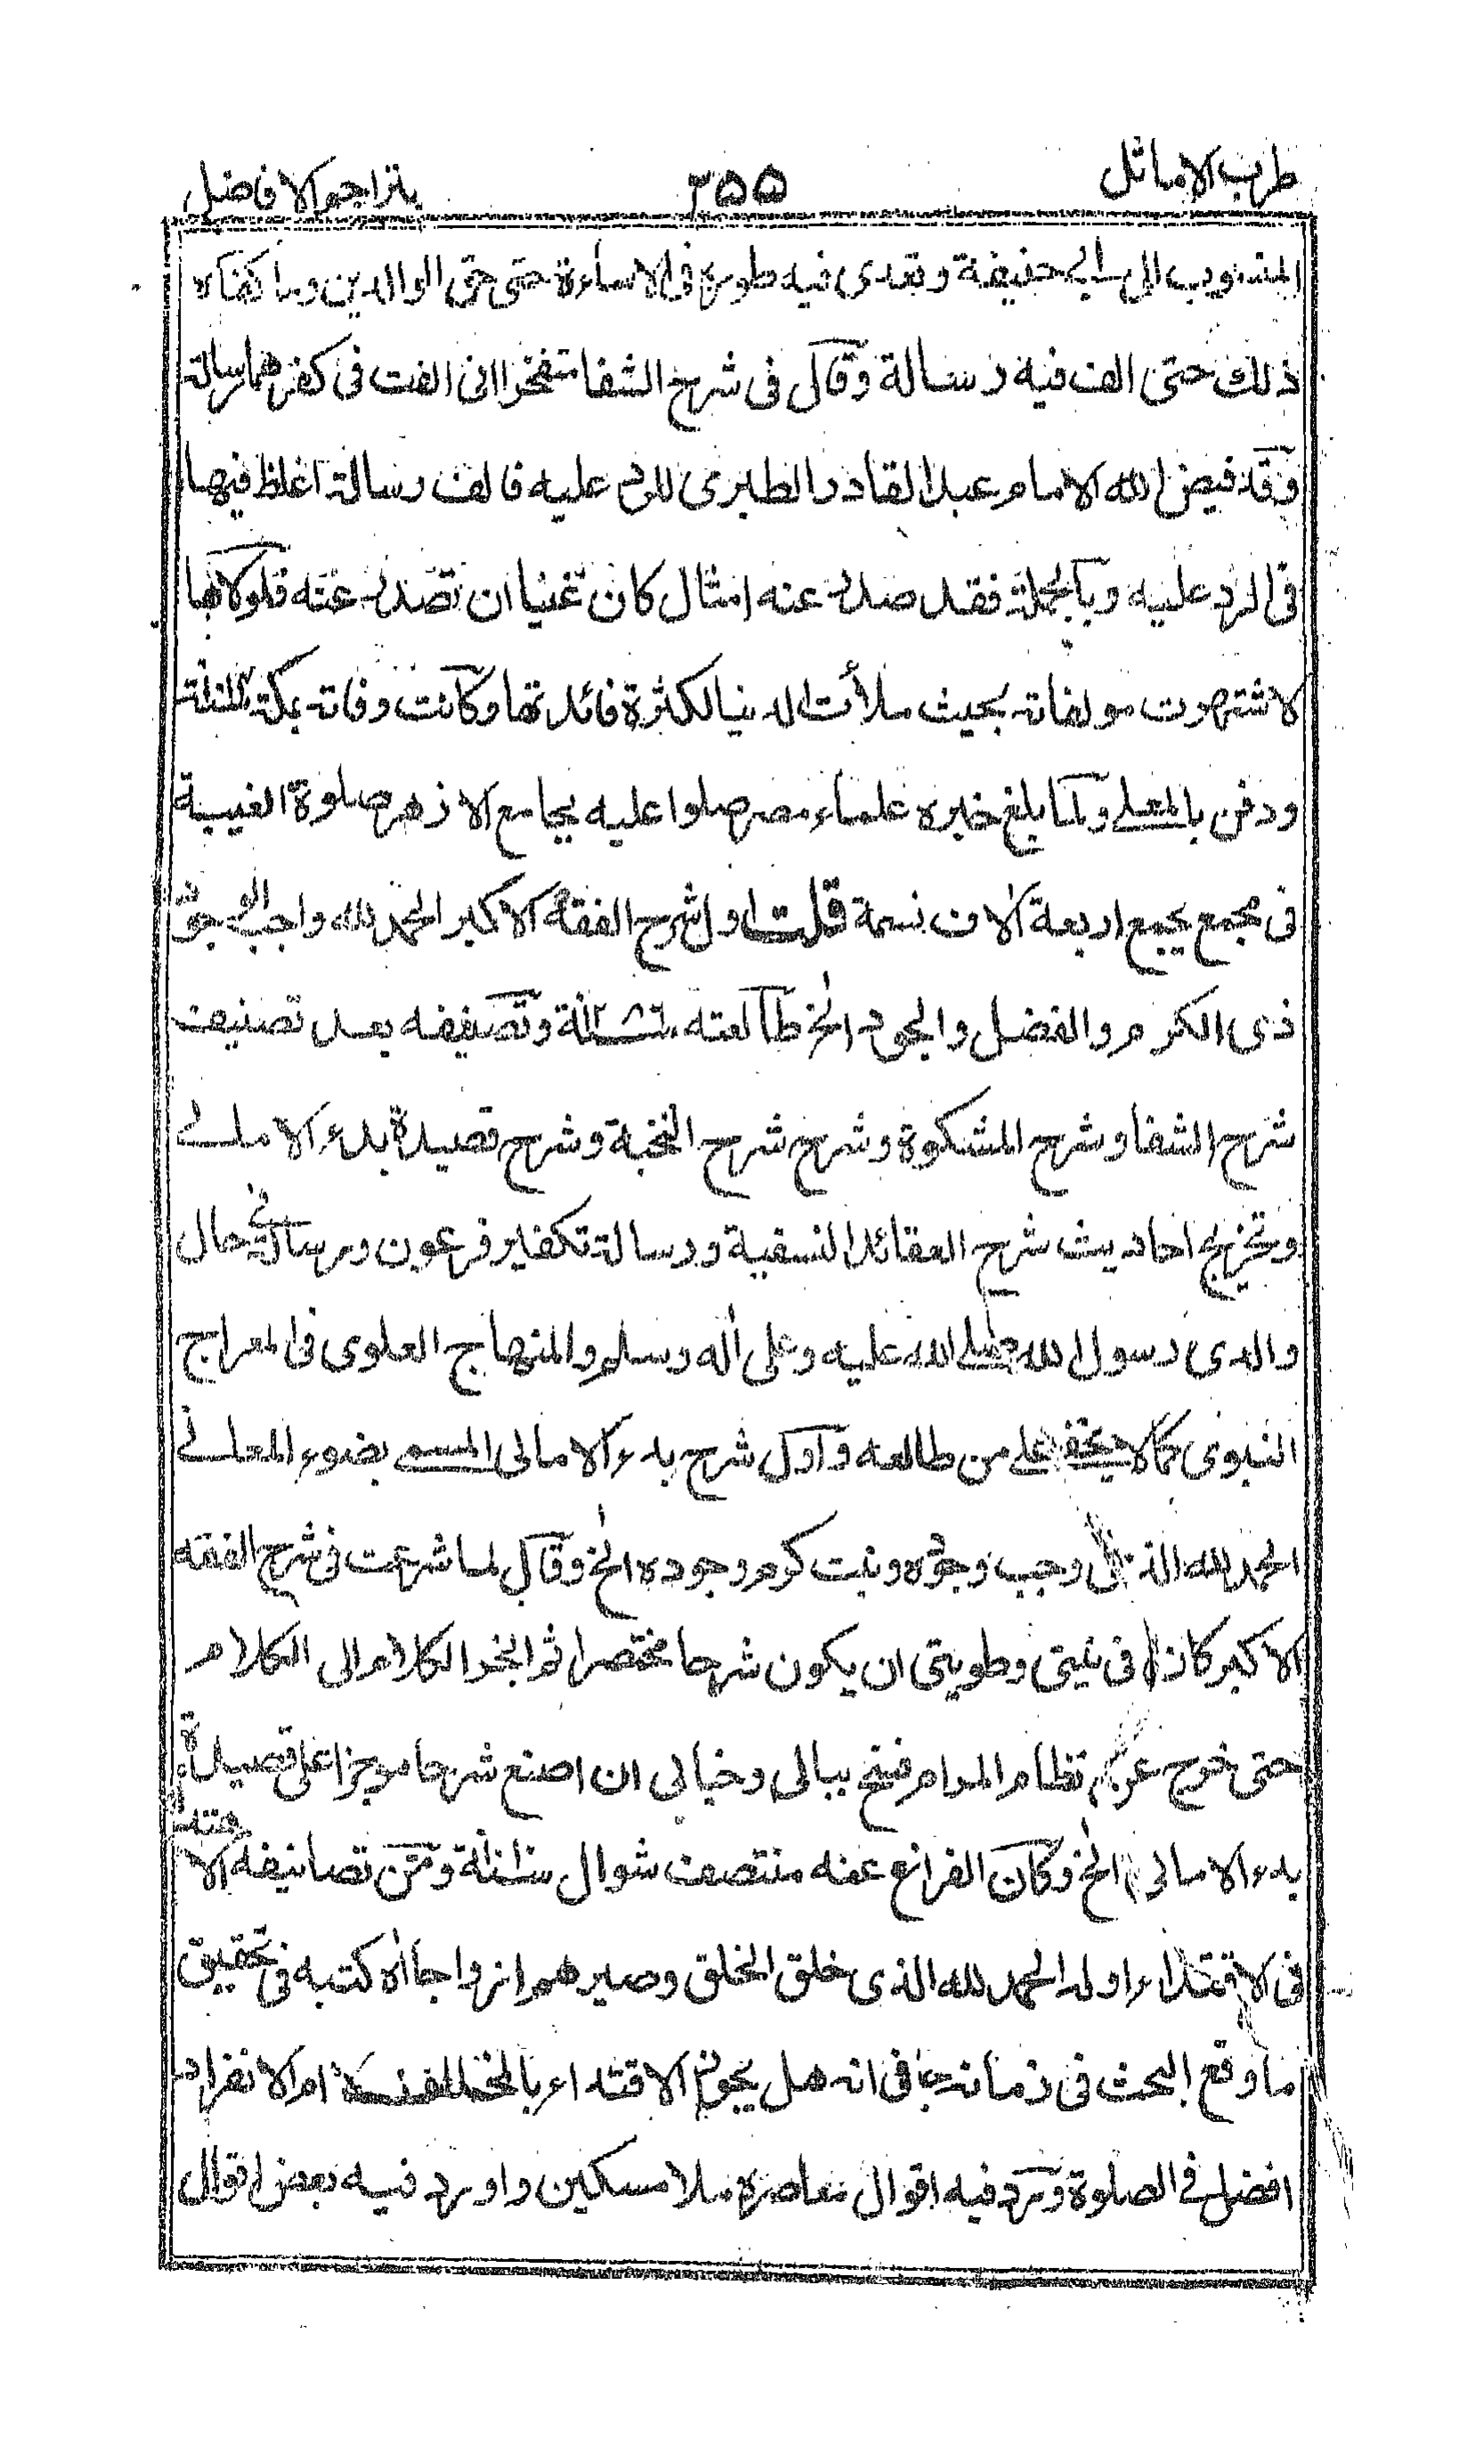 طرب الاماثل ٢٥٥ بتراجم الافاضل
المنسوب الى ابي حنيفة وتعدى فيه طوره في الاساءة حتى حق الوالدين وما كفاه
ذلك حتى الف فيه رسالة وقال فى شرح الشفا متفخرا انى الفت فى كفرهما رسالة
وقد قيض الله الامام عبد القادر الطبرى للرد عليه فالف رسالة اغلظ فيها
فى الرد عليه وبالجملة فقد صدر عنه امثال كان غنيا ان تصدر عنه فلولاها
لاشتهرت مولفاته بحيث ملأت الدنيا لكثرة فائدتها وكانت وفاته بمكة
ودفن بالمعلى ولما بلغ خبره علماء مصر صلوا عليه بجامع الازهر صلوة الغيبة
فى مجمع يجمع اربعة آلاف نسمة قلت اول شرح الفقه الاكبر الحمد لله واجب الوجود
ذى الكرم والفضل والجود الخ طالعته سنة ١٢٨٦ وتصنيفه بعد تصنيف
شرح الشفا وشرح المشكوة وشرح شرح النخبة وشرح قصيدة بدء الامالي
وتخريج احاديث شرح العقائد النسفية ورسالة تكفير فرعون ورسالة في حال
والدى رسول الله صلى الله عليه وعلى آله وسلم والمنهاج العلوى فى المعراج
النبوى كما لا يخفى على من طالعه واول شرح بدء الامالى المسمى بضوء المعالي
الحمد لله الذى وجب وجوده وثبت كرمه وجوده الخ وقال لما شرعت فى شرح الفقه
الاكبر كان فى نيتى وطويتى ان يكون شرحا مختصرا ثم انجر الكلام الى الكلام
حتى خرج عن نظام المرام فسنح ببالى وخيالى ان اصنع شرحا موجزا على قصيدة
بدء الامالى الخ وكان الفراغ عنه منتصف شوال سنة ١٠١٠ ومن تصانيفه الاهتداء
فى الاقتداء اوله الحمد لله الذى خلق الخلق وصيرهم ازواجا اه كتبه فى تحقيق
ما وقع البحث فى زمانه فى انه هل يجوز الاقتداء بالمخالف ام الانفراد
افضل في الصلوة ورد فيه اقوال معاصره ملا مسكين واورد فيه بعض اقوال